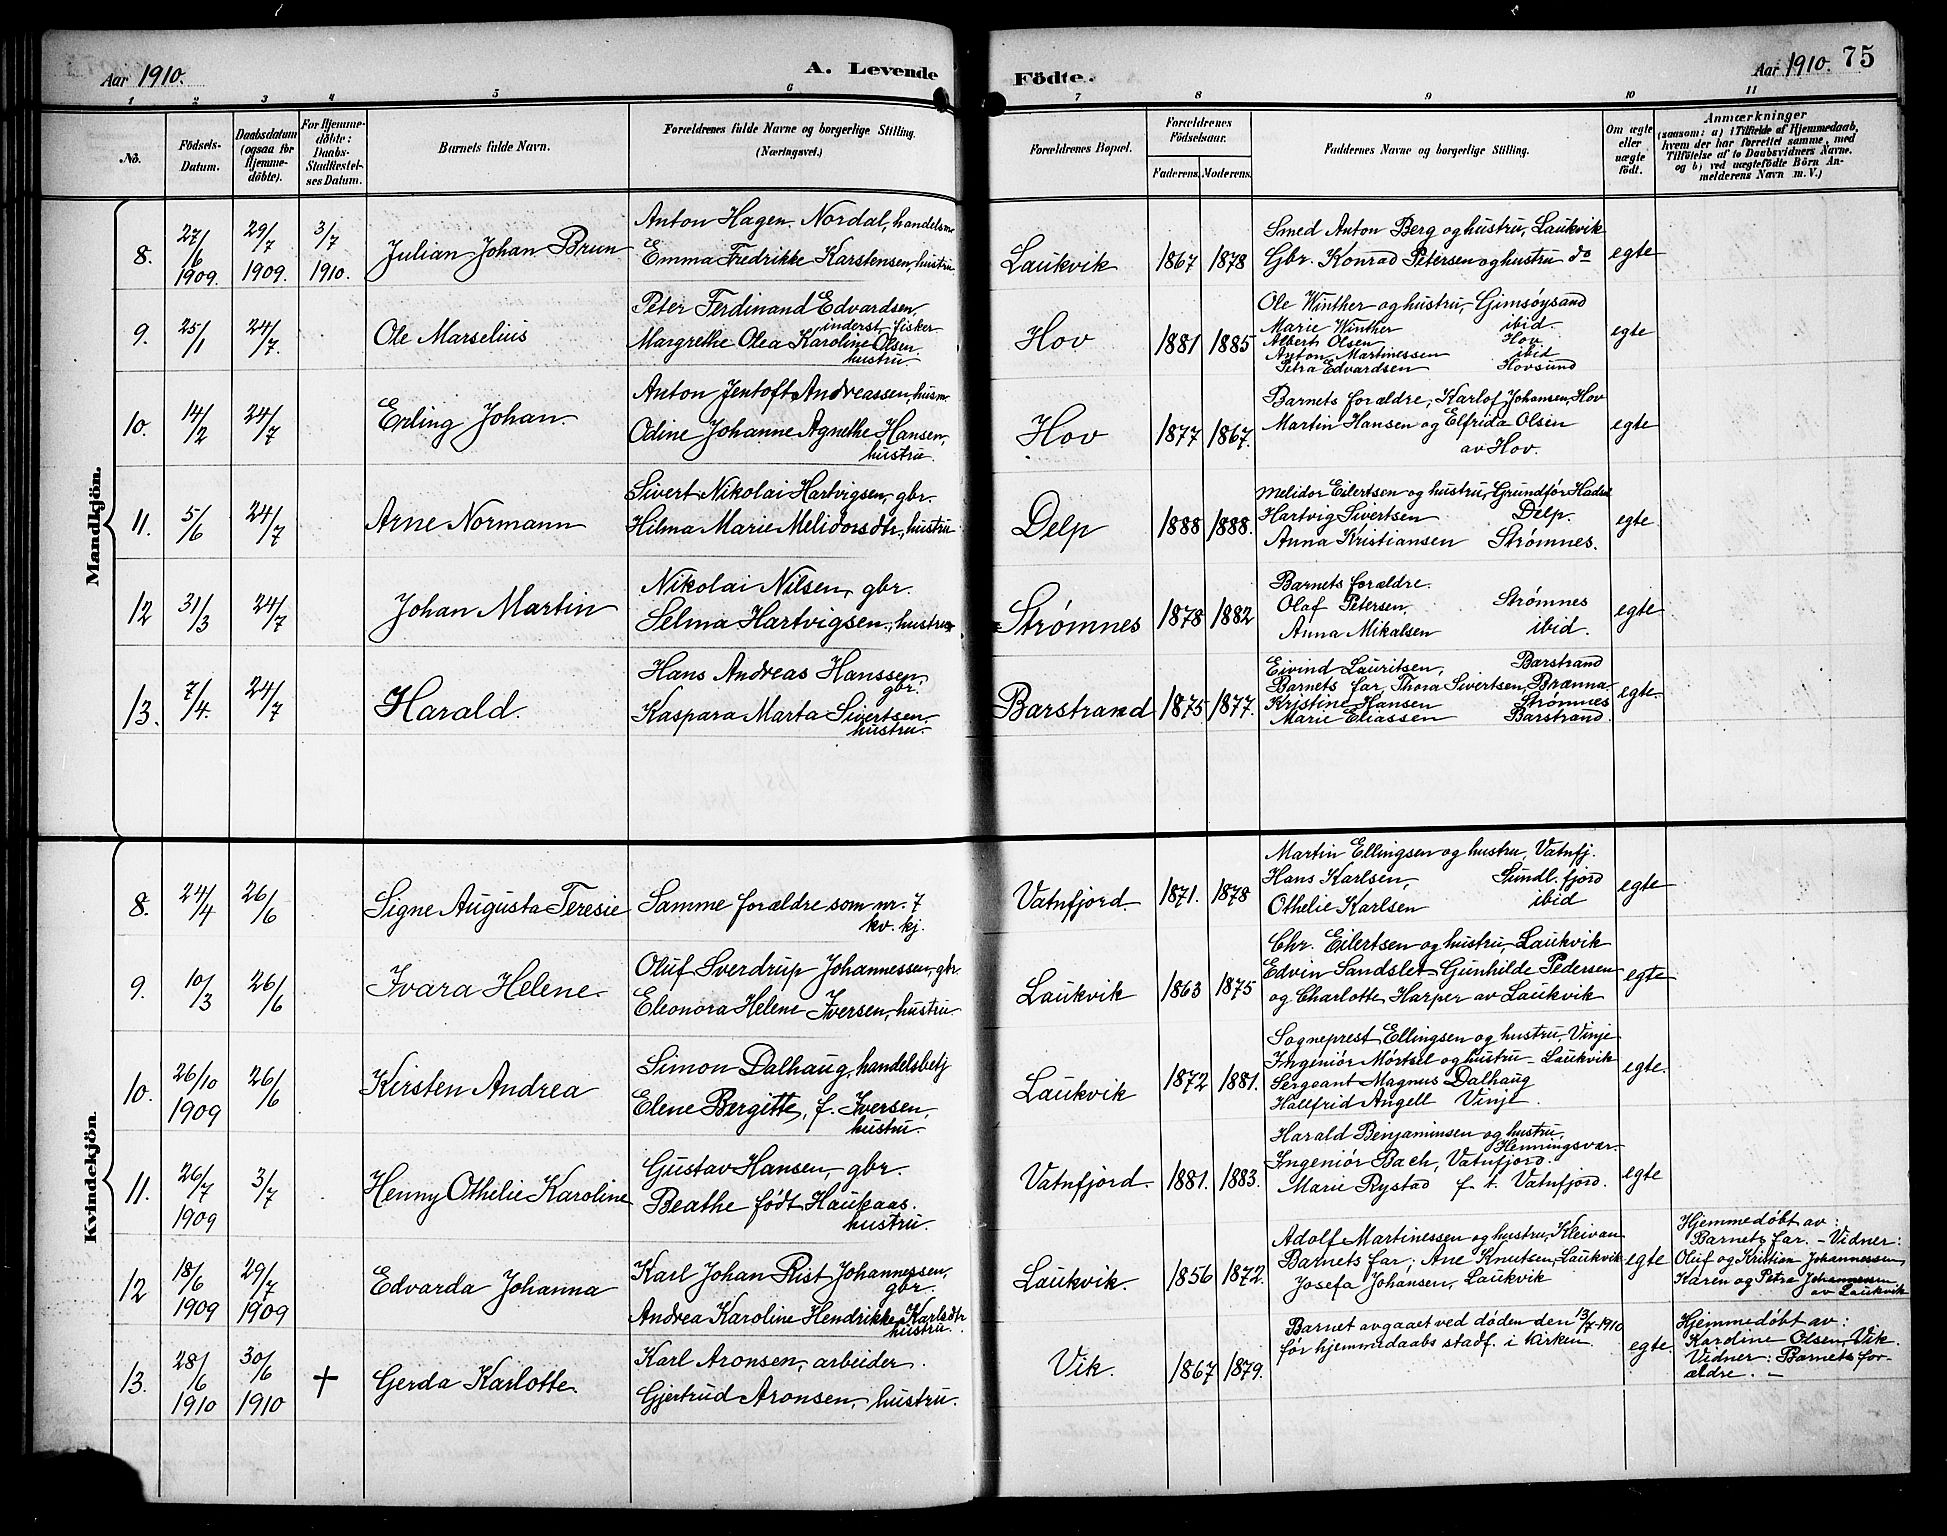 Aar 1910.
A. Levende Födte.
Aar 1910. 75
1 2 3 4 5 6 7 8 9 10 11
No.
Födsels-Datum.
Daabsdatum (ogsaa for Hjemme-döbte).
For Hjemme-döbte: Daabs-Stadfæstel-ses Datum.
Barnets fulde Navn.
Forældrenes fulde Navne og borgerlige Stilling. (Næringsvei.)
Forældrenes Bopæl.
Forældrenes Födselsaar.
Faderens. Moderens.
Faddernes Navne og borgerlige Stilling.
Om ægte eller uægte födt.
Anmærkninger
(saasom: a) i Tilfælde af Hjemmedaab, hvem der har forrettet samme, med Tilföielse af to Daabsvidners Navne. og b) ved uægtefödte Börn An-melderens Navn m. V.)
Mandkjön.
8. 27/6 1909. 29/7 1909. 3/7 1910. Julian Johan Brun
Anton Hagen Nordal, handelsm.
Emma Fredrikke Karstensen, hustru
Laukvik 1867 1878
Smed Anton Berg og hustru, Laukvik
Gbr. Konrad Petersen og hustru do
egte
9. 25/1 24/7. Ole Marselius
Peter Ferdinand Edvardsen,
inderst, fisker
Margrethe Olea Karoline Olsen
hustru.
Hov 1881 1885
Ole Winther og hustru, Gimsøysand
Marie Winther ibid.
Albert Olsen Hov.
Anton Martinessen ibid
Petra Edvardsen Hovsund
egte
10. 14/2 24/7 Erling Johan.
Anton Jentoft Andreassen, husm.
Odine Johanne Agnethe Hansen,
hustru.
Hov 1877 1867.
Barnets forældre, Karlof Johansen, Hov
Martin Hansen og Elfrida Olsen
av Hov.
egte
11. 5/6 24/7 Arne Normann
Sivert Nikolai Hartvigsen, gbr.
Hilma Marie Melidorsdtr., hustru
Delp 1888 1888.
Melidor Eilertsen og hustru, Grundfør Hadsel
Hartvig Sivertsen Delp.
Anna Kristiansen Strømnes.
egte
12 31/3 24/7 Johan Martin
Nikolai Nilsen, gbr.
Selma Hartvigsen, hustru
Strømnes 1878 1882
Barnets forældre.
Olaf Petersen, Strømnes
Anna Mikalsen ibid.
egte
13. 7/4. 24/7 Harald.
Hans Andreas Hanssen,
gbr.
Kaspara Marta Sivertsen,
hustru.
Barstrand 1875 1877.
Eivind Lauritsen, Barstrand
Barnets far, Thora Sivertsen, Brænna.
Kristine Hansen Strømnes
Marie Eliassen Barstrand.
egte.
Kvindekjön.
8. 24/4 26/6 Signe Augusta Teresie
Samme forældre som nr. 7
kv. kj.
Vatnfjord. 1871. 1878
Martin Ellingsen og hustru, Vatnfj.
Hans Karlsen, Sundl. fjord
Othelie Karlsen ibid
egte
9. 10/3 26/6 Ivara Helene.
Oluf Sverdrup Johannessen, gbr.
Eleonora Helene Iversen, hustru.
Laukvik 1863 1875
Chr. Eilertsen og hustru, Laukvik
Edvin Sandslet, Gunhilde Pedersen
og Charlotte Harper av Laukvik
egte
10. 26/10 1909 26/6 Kirsten Andrea
Simon Dalhaug, handelsbetj
Elene Bergitte, f. Iversen,
hustru.
Laukvik 1872 1881.
Sogneprest Ellingsen og hustru, Vinje
Ingeniør Mørtsel og hustru - Laukvik
Sergeant Magnus Dalhaug
Hallfrid Angell Vinje.
egte.
11. 26/7 1909 3/7 Henny Othelie Karoline
Gustav Hansen, gbr.
Beathe født Haukaas.
hustru.
Vatnfjord. 1881. 1883.
Harald Benjaminsen og hustru,
Henningsvær.
Ingeniør Bach, Vatnfjord.
Marie Rystad f. t. Vatnfjord.
egte
12 18/6 1909 29/7 1909 Edvarda Johanna
Karl Johan Rist Johannessen,
gbr.
Andrea Karoline Hendrikke Karlsdtr
hustru.
Laukvik. 1856 1872.
Adolf Martinessen og hustru, Kleivan
Barnets far; Ane Knutsen, Laukvik
Josefa Johansen, Laukvik
egte
Hjemmedøbt av:
Barnets far. - Vidner:
Oluf og Kristian Johannessen
Karen og Petra Johannessen
av Laukvik
13. 28/6 1910 30/6 1910 † Gerda Karlotte.
Karl Aronsen, arbeider.
Gjertrud Aronsen, hustru.
Vik. 1867 1879.
Barnet avgaaet ved døden den 13/7 1910
før hjemmedaabs stadf. i kirken.
egte.
Hjemmedøbt av:
Kardine Olsen, Vik.
Vidner: Barnets for-
ældre. -